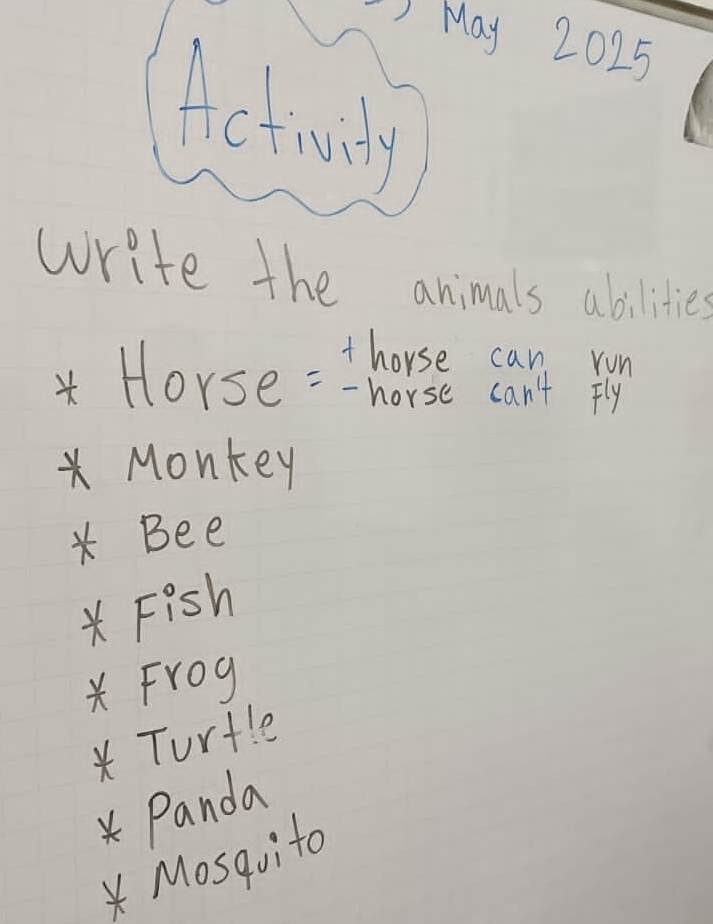 May 2025
Activity
Write the animals abilities
* Horse = + horse can run
- horse can't Fly
* Monkey
* Bee
* Fish
* Frog
* Turtle
* Panda
* Mosquito